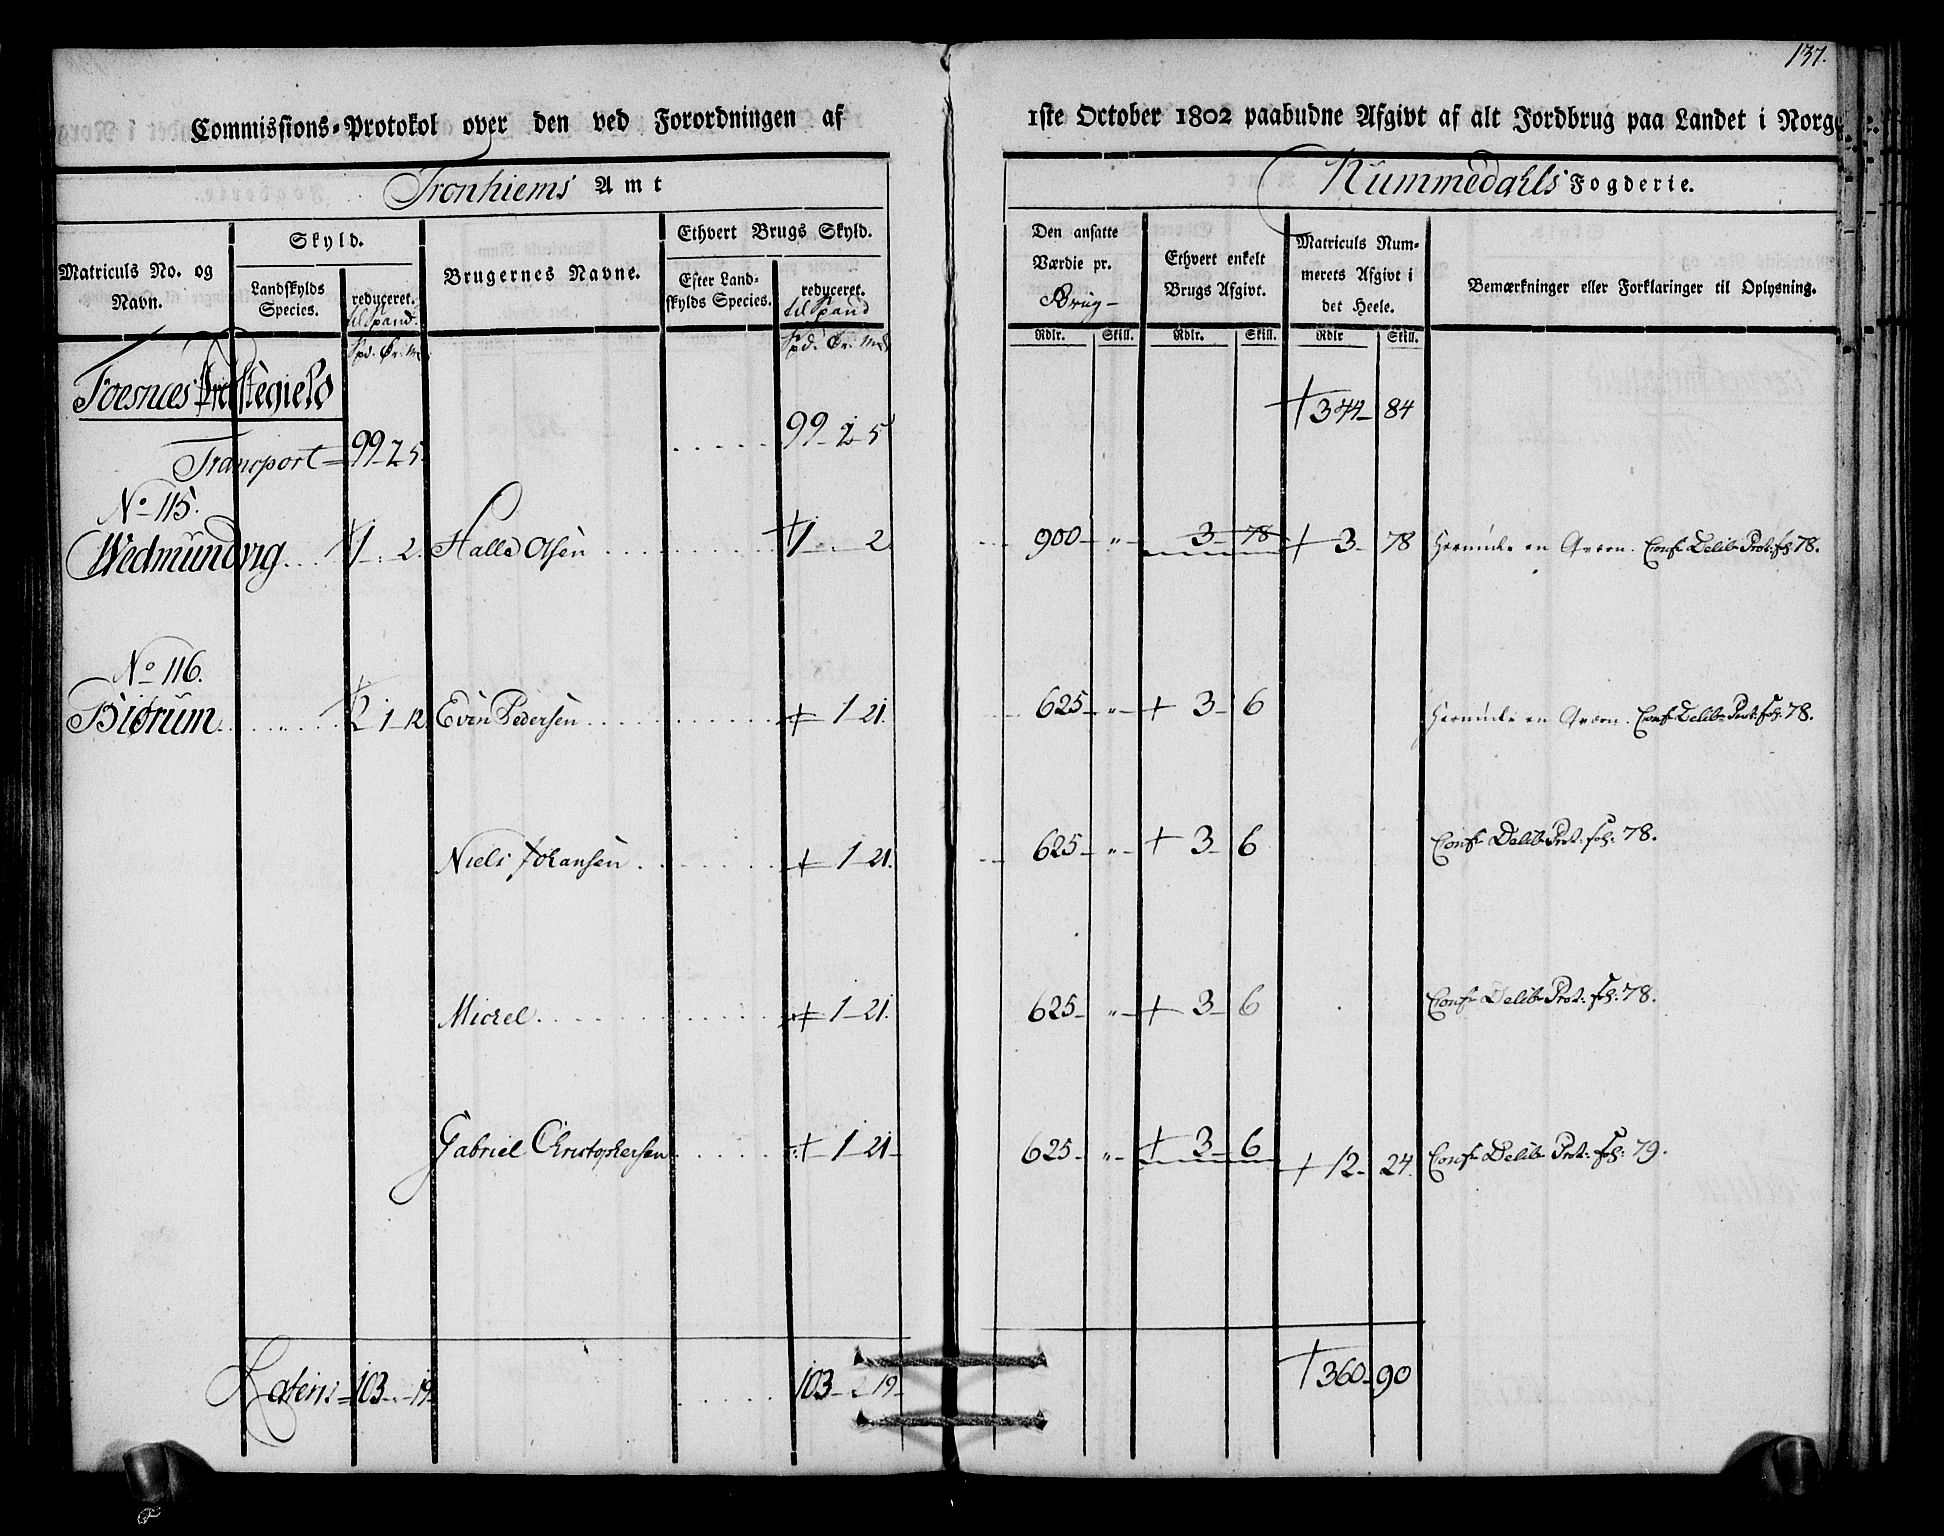 137.
Commissions-Protokol over den ved Forordningen af 1ste October 1802 paabudne Afgivt af alt Jordbrug paa Landet i Norge
Tronhiems Amt
Nummedahls Fogderie.
Matriculs No. og Navn.
Skyld.
Landskylds Species.
reduceret. til Spand.
Brugernes Navne.
Ethvert Brugs Skyld.
Efter Landskylds Species.
reduceret. til Spand
Den ansatte Værdie pr. Brug
Ethvert enkelt Brugs Afgivt.
Matriculs Nummerets Afgivt i det Heele.
Bemærkninger eller Forklaringer til Oplysning.
Spd. Ør. Mk.
Spd. Ør. Mk.
Rdlr. Skill. Rdlr. Skill. Rdlr Skill.
Foesnæs Præstegield
† 344 - 84
Transport = 99 - 2 5. 99 - 2 - 5
No 115.
Wedmundvig 1 . 2. Halle Olsen 1 . 2 900 - " - 3 - 78 + 3 - 78 en Qværn. Conf Delib Prot: fol: 78.
No 116.
Biørum 2 1 - 12. Even Pedersen + 1 - 21. 625 - " - + 3 - 6 en Qværn. Conf Delib Prot: fol: 78.
Niels Johansen + 1 - 21. 625 - " - + 3 - 6 Conf Delib Prot: fol: 78.
Michel + 1 - 21. 625 - " - + 3 - 6 Conf Delib Prot: fol: 78.
Gabriel Christophersen + 1 - 21 - 625 - " - + 3 - 6 + 12 - 24. Conf Delib Prot: fol: 79.
Latens = 103 . - 19 103 - 19 - † 360 - 90